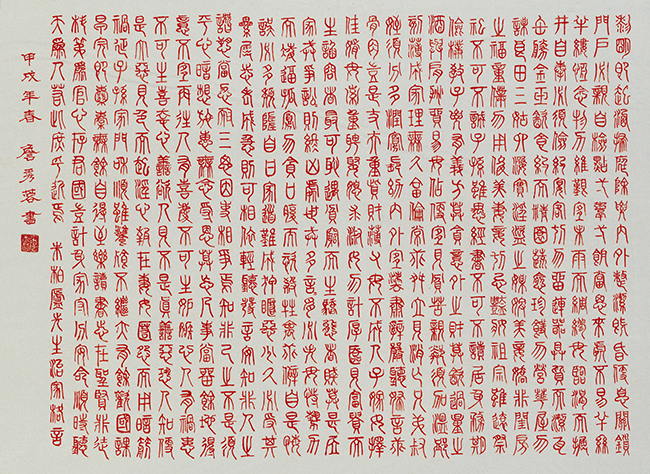 黎明即起灑掃庭除要內外整潔既昏便息關鎖
門戶必親自檢點一粥一飯當思來處不易半絲
半縷恆念物力維艱宜未雨而綢繆毋臨渴而掘
井自奉必須儉約宴客切勿留連器具質而潔瓦
缶勝金玉飲食約而精園蔬愈珍饈勿營華屋勿
謀良田三姑六婆實淫盜之媒婢美妾嬌非閨房
之福童僕勿用俊美妻妾切忌艷妝祖宗雖遠祭
祀不可不誠子孫雖愚經書不可不讀居身務期
儉樸教子要有義方勿貪意外之財勿飲過量之
酒與肩挑貿易毋佔便宜見貧苦親鄰須加溫恤
刻薄成家理無久享倫常乖舛立見消亡兄弟叔
姪須分多潤寡長幼內外宜法肅辭嚴聽婦言乖
骨肉豈是丈夫重資財薄父母不成人子嫁女擇
佳婿毋索重聘娶媳求淑女勿計厚奩見富貴而
生諂容者最可恥遇貧窮而作驕態者賤莫甚居
家戒爭訟訟則終凶處世戒多言言多必失毋恃勢力
而凌逼孤寡勿貪口腹而恣殺牲禽乖僻自是悔
誤必多頹惰自甘家道難成狎暱惡少久必受其
累屈志老成急則可相依輕聽發言安知非人之
譖愬當忍耐三思因事相爭焉知非我之不是須
平心暗想施惠無念受恩莫忘凡事當留餘地得
意不宜再往人有喜慶不可生妒忌心人有禍患
不可生喜幸心善欲人見不是真善惡恐人知便
是大惡見色而起淫心報在妻女匿怨而用暗箭
禍延子孫家門和順雖饔飧不繼亦有餘歡國課
早完即囊橐無餘自得至樂讀書志在聖賢非徒
科第為官心存君國豈計身家守分安命順時聽
天為人若此庶乎近焉 朱柏廬先生治家格言
甲戌年春